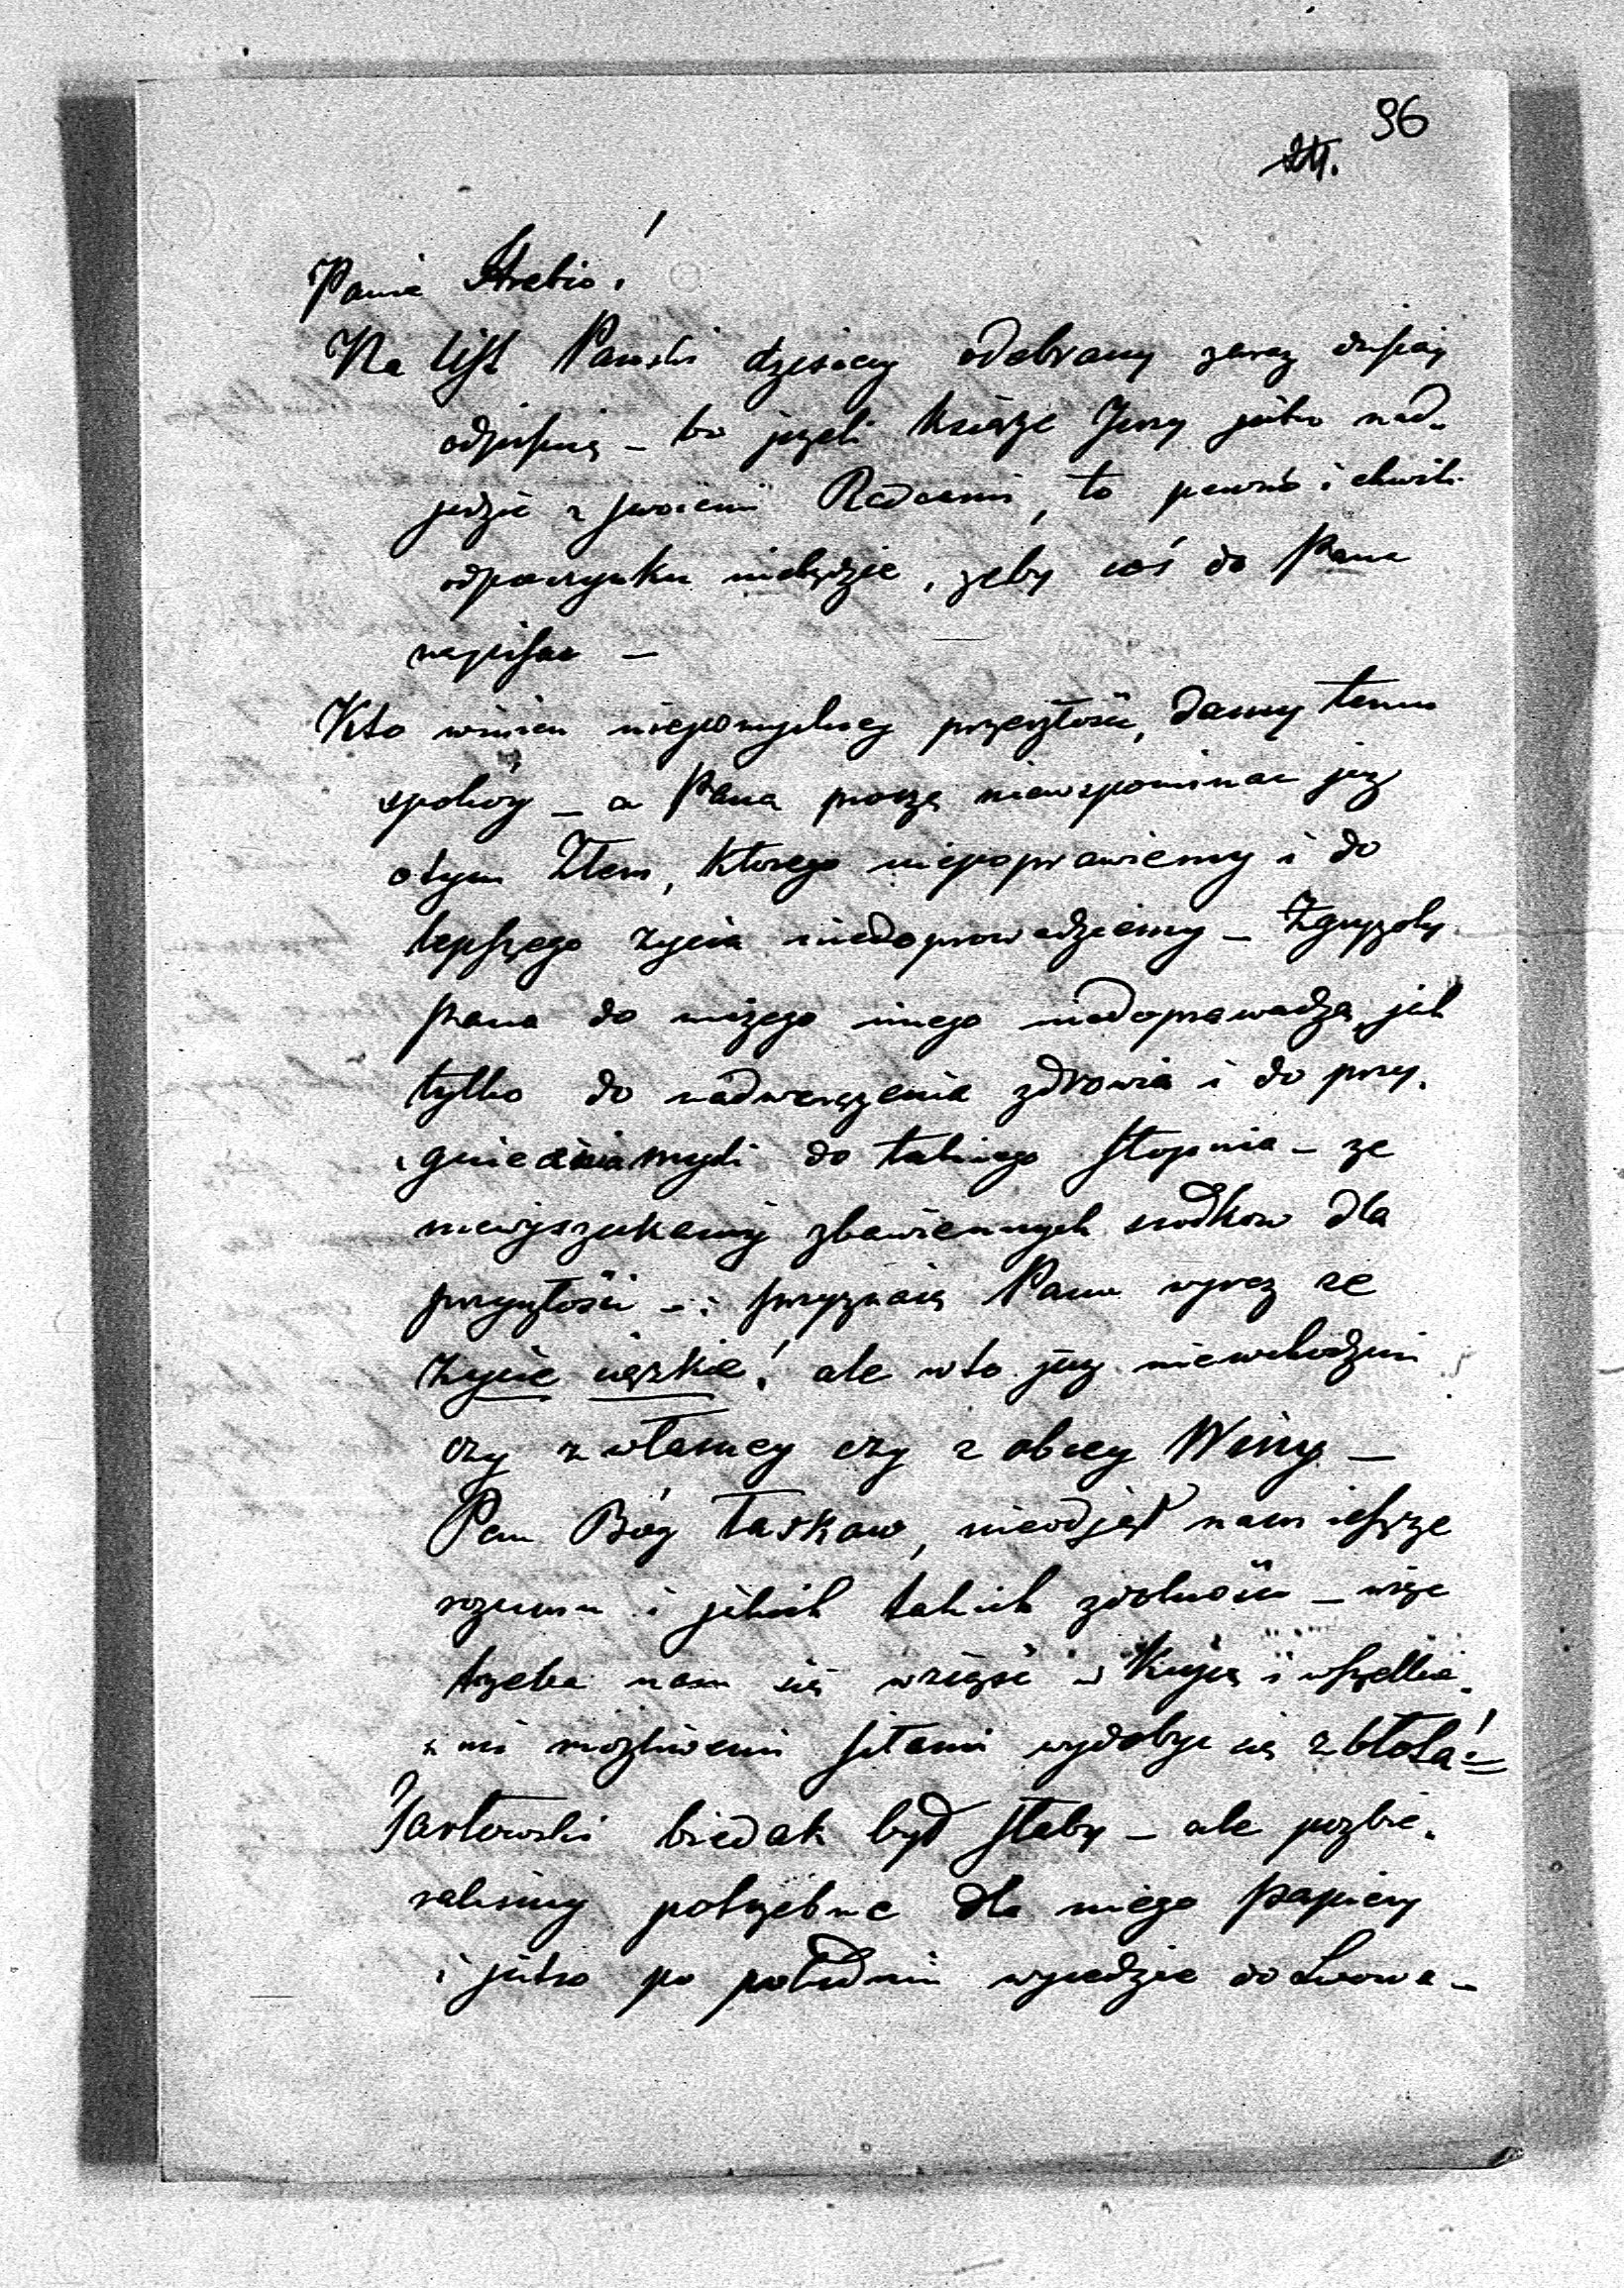 96
Panie Hrabio!
Na list Panski dzisiay odebrany zaraz dzisiay
odpisuię – bo jezeli Książe Jerzy jutro nad-
jedzie z swoiemi Radcami, to pewnie i chwili
odpoczynku niebędzie, zeby coś do Pana
napisac –
Kto winien niepomyslney przeszłości, damy temu
spokoy – a Pana proszę niewspominac juz
o tym Złem, ktorego niepoprawiemy i do
lepszego zycia niedoprowadziemy – Zgryzoty
Pana do niczego innego niedoprowadzą jak
tylko do nadwerężenia zdrowia i do przy-
gniecenia mysli do takiego stopnia – ze
niewyszukamy zbawiennych srodkow dla
przyszłości – i przyznaię Panu wyraz ze
życie cięzkie! ale w to juz niewchodzim
czy z własney czy z obcey Winy –
Pan Bóg łaskaw, nieodjął nam ieszcze
rozumu i jakich takich zdolności – więc
trzeba nam się wziąść w Kupę i wszelkie-
mi mozliwemi siłami wydobyc się z błota!
Jarłowski biedak był słaby – ale pozbie-
ralismy potrzebne dla niego papiery
i jutro po południu wyiedzie do Lwowa –